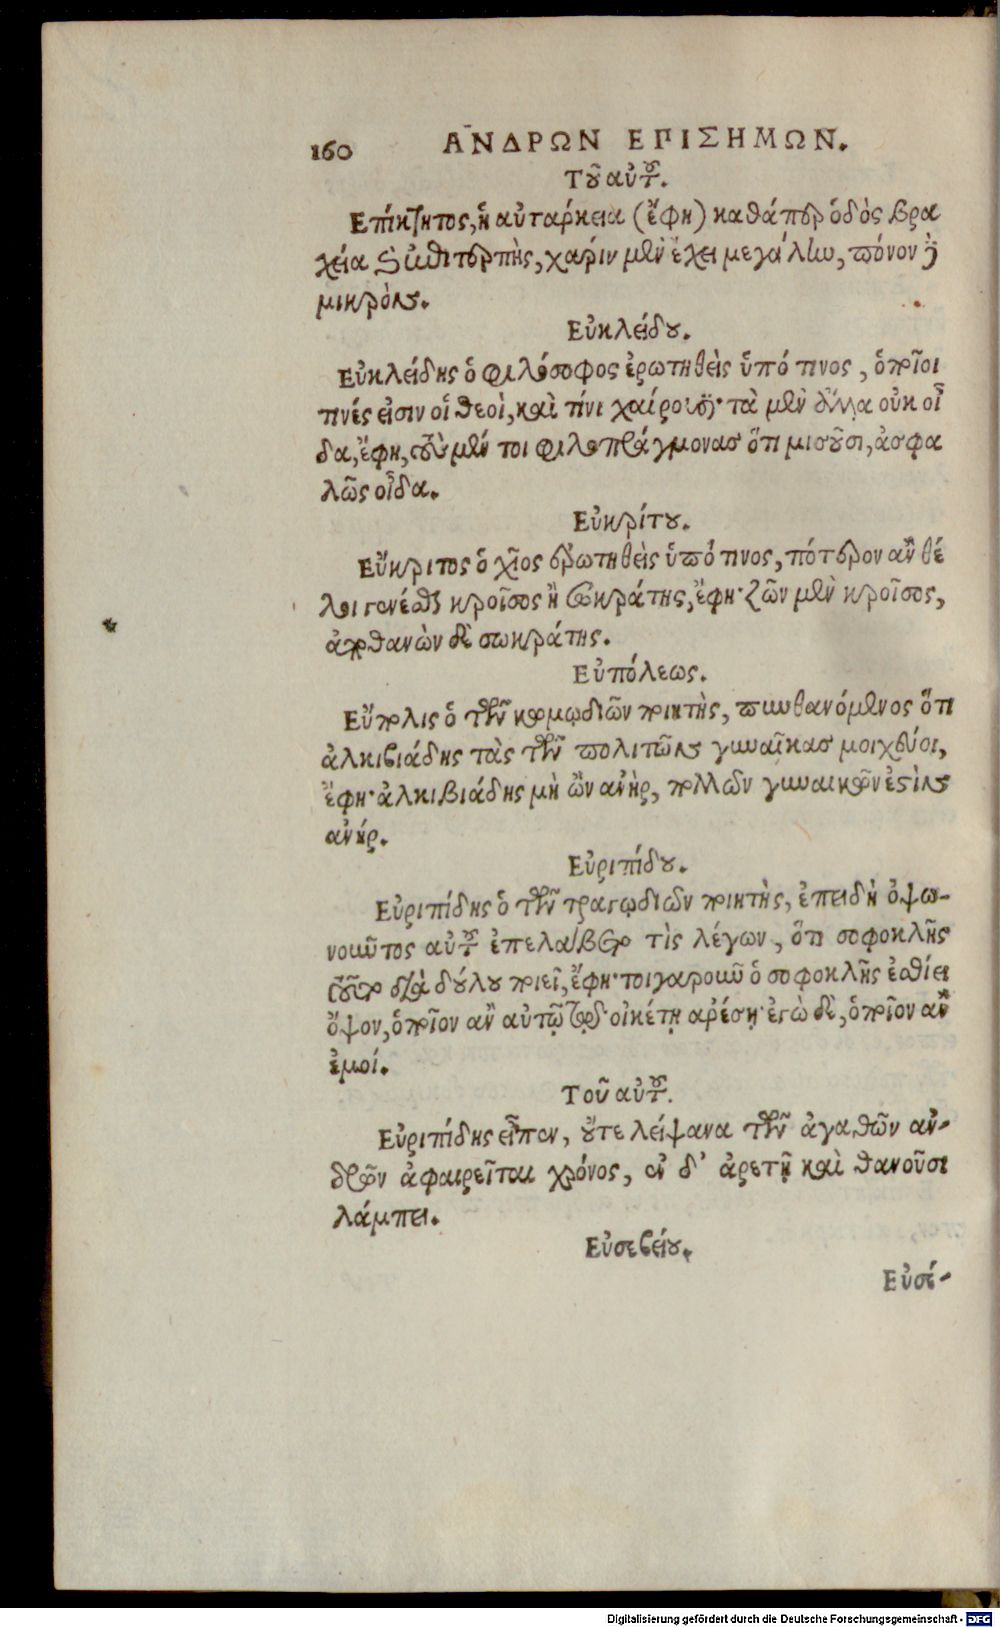 160 ΑΝΔΡΩΝ ΕΠΙΣΗΜΩΝ.
Τοῦ αὐτοῦ.
Επίκτητος, ἡ αὐτάρκεια (ἔφη) καθάπερ ὁδὸς βρα
χεῖα καὶ ἐπιτερπὴς, χάριν μὲν ἔχει μεγάλην, πόνον δὲ
μικρόν.
Εὐκλείδου.
Εὐκλείδης ὁ φιλόσοφος ἐρωτηθεὶς ὑπό τινος, ὁποῖοι
τινές εἰσιν οἱ θεοὶ, καὶ τίνι χαίρουσι· τὰ μὲν ἄλλα οὐκ οἶ
δα, ἔφη, τοὺς μέν τοι φιλοπράγμονας ὅτι μισοῦσι, ἀσφα
λῶς οἶδα.
Εὐκρίτου.
Εὔκριτος ὁ χῖος ἐρωτηθεὶς ὑπό τινος, πότερον ἂν θέ
λοι γενέσθαι κροῖσος ἢ σωκράτης, ἔφη· ζῶν μὲν κροῖσος,
ἀποθανὼν δὲ σωκράτης.
Εὐπόλεως.
Εὔπολις ὁ τῶν κωμῳδιῶν ποιητὴς, πυνθανόμενος ὅτι
ἀλκιβιάδης τὰς τῶν πολιτῶν γυναῖκας μοιχεύει,
ἔφη· ἀλκιβιάδης μὴ ὢν ἀνὴρ, πολλῶν γυναικῶν ἐστὶν
ἀνήρ.
Εὐριπίδου.
Εὐριπίδης ὁ τῶν τραγῳδιῶν ποιητὴς, ἐπειδὴ ὀψω-
νοῦντος αὐτοῦ ἐπελάβετο τὶς λέγων, ὅτι σοφοκλῆς
τοῦτο διὰ δούλου ποιεῖ, ἔφη· τοιγαροῦν ὁ σοφοκλῆς ἐσθίει
ὄψον, ὁποῖον ἂν αὐτῷ τῷ οἰκέτῃ ἀρέσῃ· ἐγὼ δὲ, ὁποῖον ἂν
ἐμοί.
Τοῦ αὐτοῦ.
Εὐριπίδης εἶπεν, οὔτε λείψανα τῶν ἀγαθῶν ἀν-
δρῶν ἀφαιρεῖται χρόνος, ἡ δ' ἀρετὴ καὶ θανοῦσι
λάμπει.
Εὐσεβείου.
Εὐσέ-
Digitalisierung gefördert durch die Deutsche Forschungsgemeinschaft - DFG